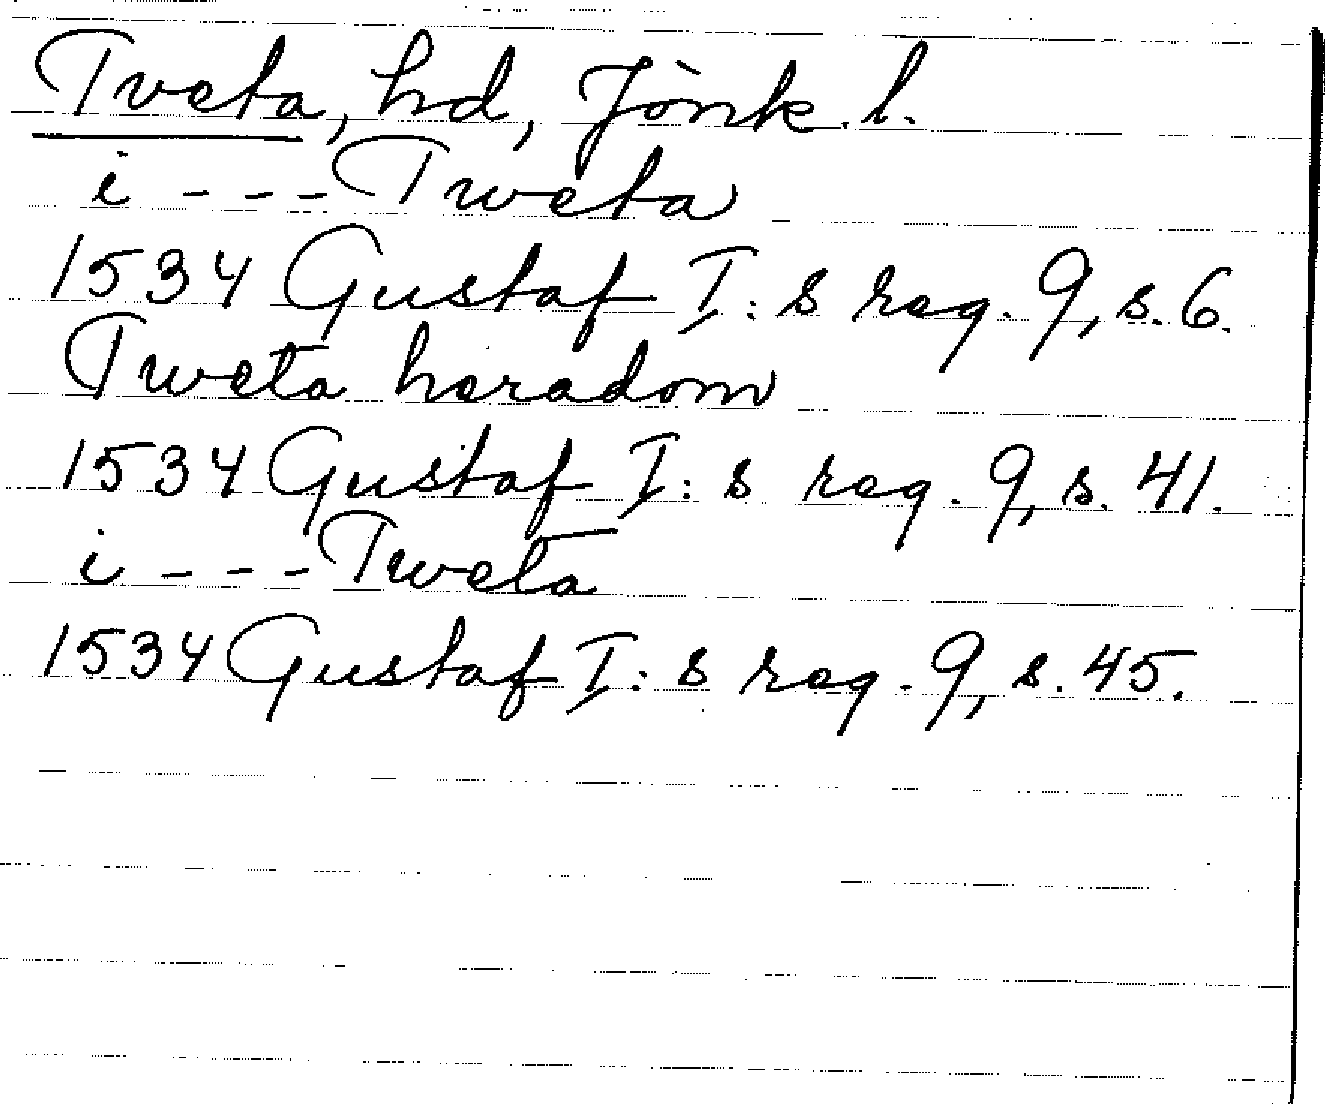 Tveta, hd, Jönk. l.
i - - - Tweta
1534 Gustaf I: s reg. 9, s. 6.
Tweta heradom
1534 Gustaf I: s reg. 9, s. 41.
i - - - Tweta
1534 Gustaf I: s reg. 9, s. 45.